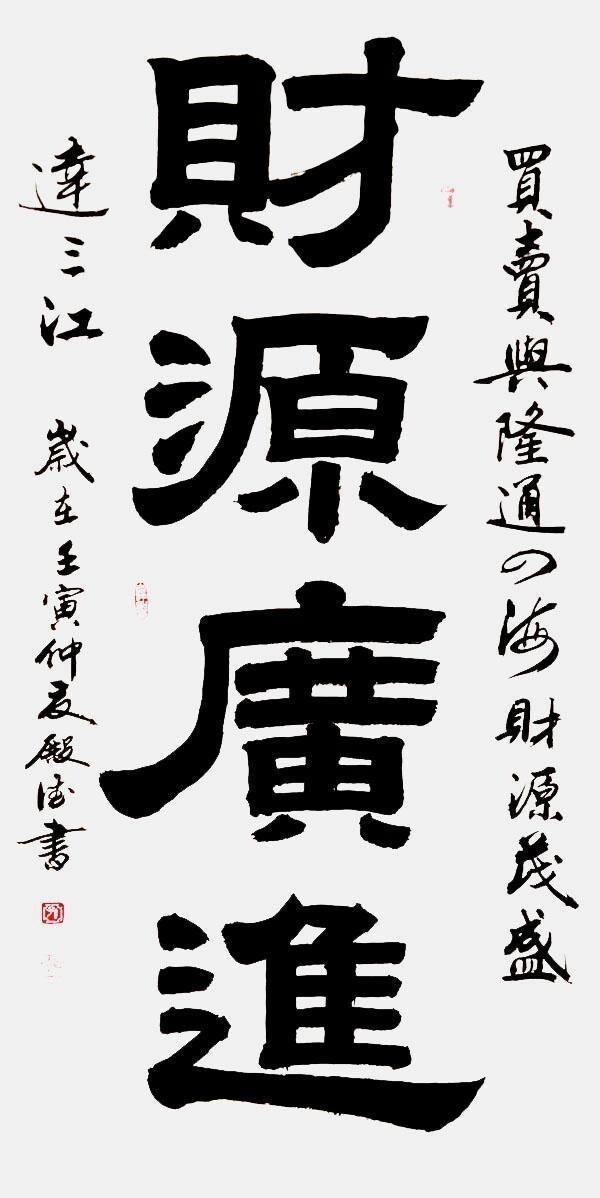 買賣興隆通四海財源茂盛
財源廣進
達三江 歲在壬寅仲夏殿德書